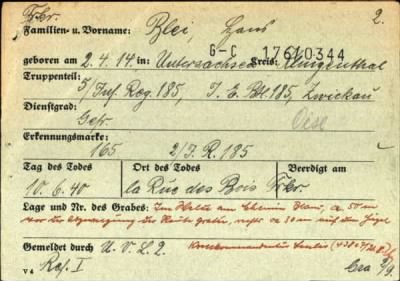 Frkr. 2.
Familien- u. Vorname: Blei, Hans
G-C 17610344
geboren am 2.4.14 in: Untersachsenberg Kreis: Klingenthal
Truppenteil:
5/Inf. Reg. 185, I. E. Btl. 185, Zwickau
Dienstgrad: Oise
Gefr.
Erkennungsmarke:
165 2/I.R. 185
Tag des Todes Ort des Todes Beerdigt am
10.6.40 la Rue des Bois Frkr.
Lage und Nr. des Grabes: Im Walde am Chemin Blanc, ca 50 m
vor der Abzweigung der Route rechts ca 30 m auf dem Hügel
Gemeldet durch U. V. L. 2.
Ref. I
V 4